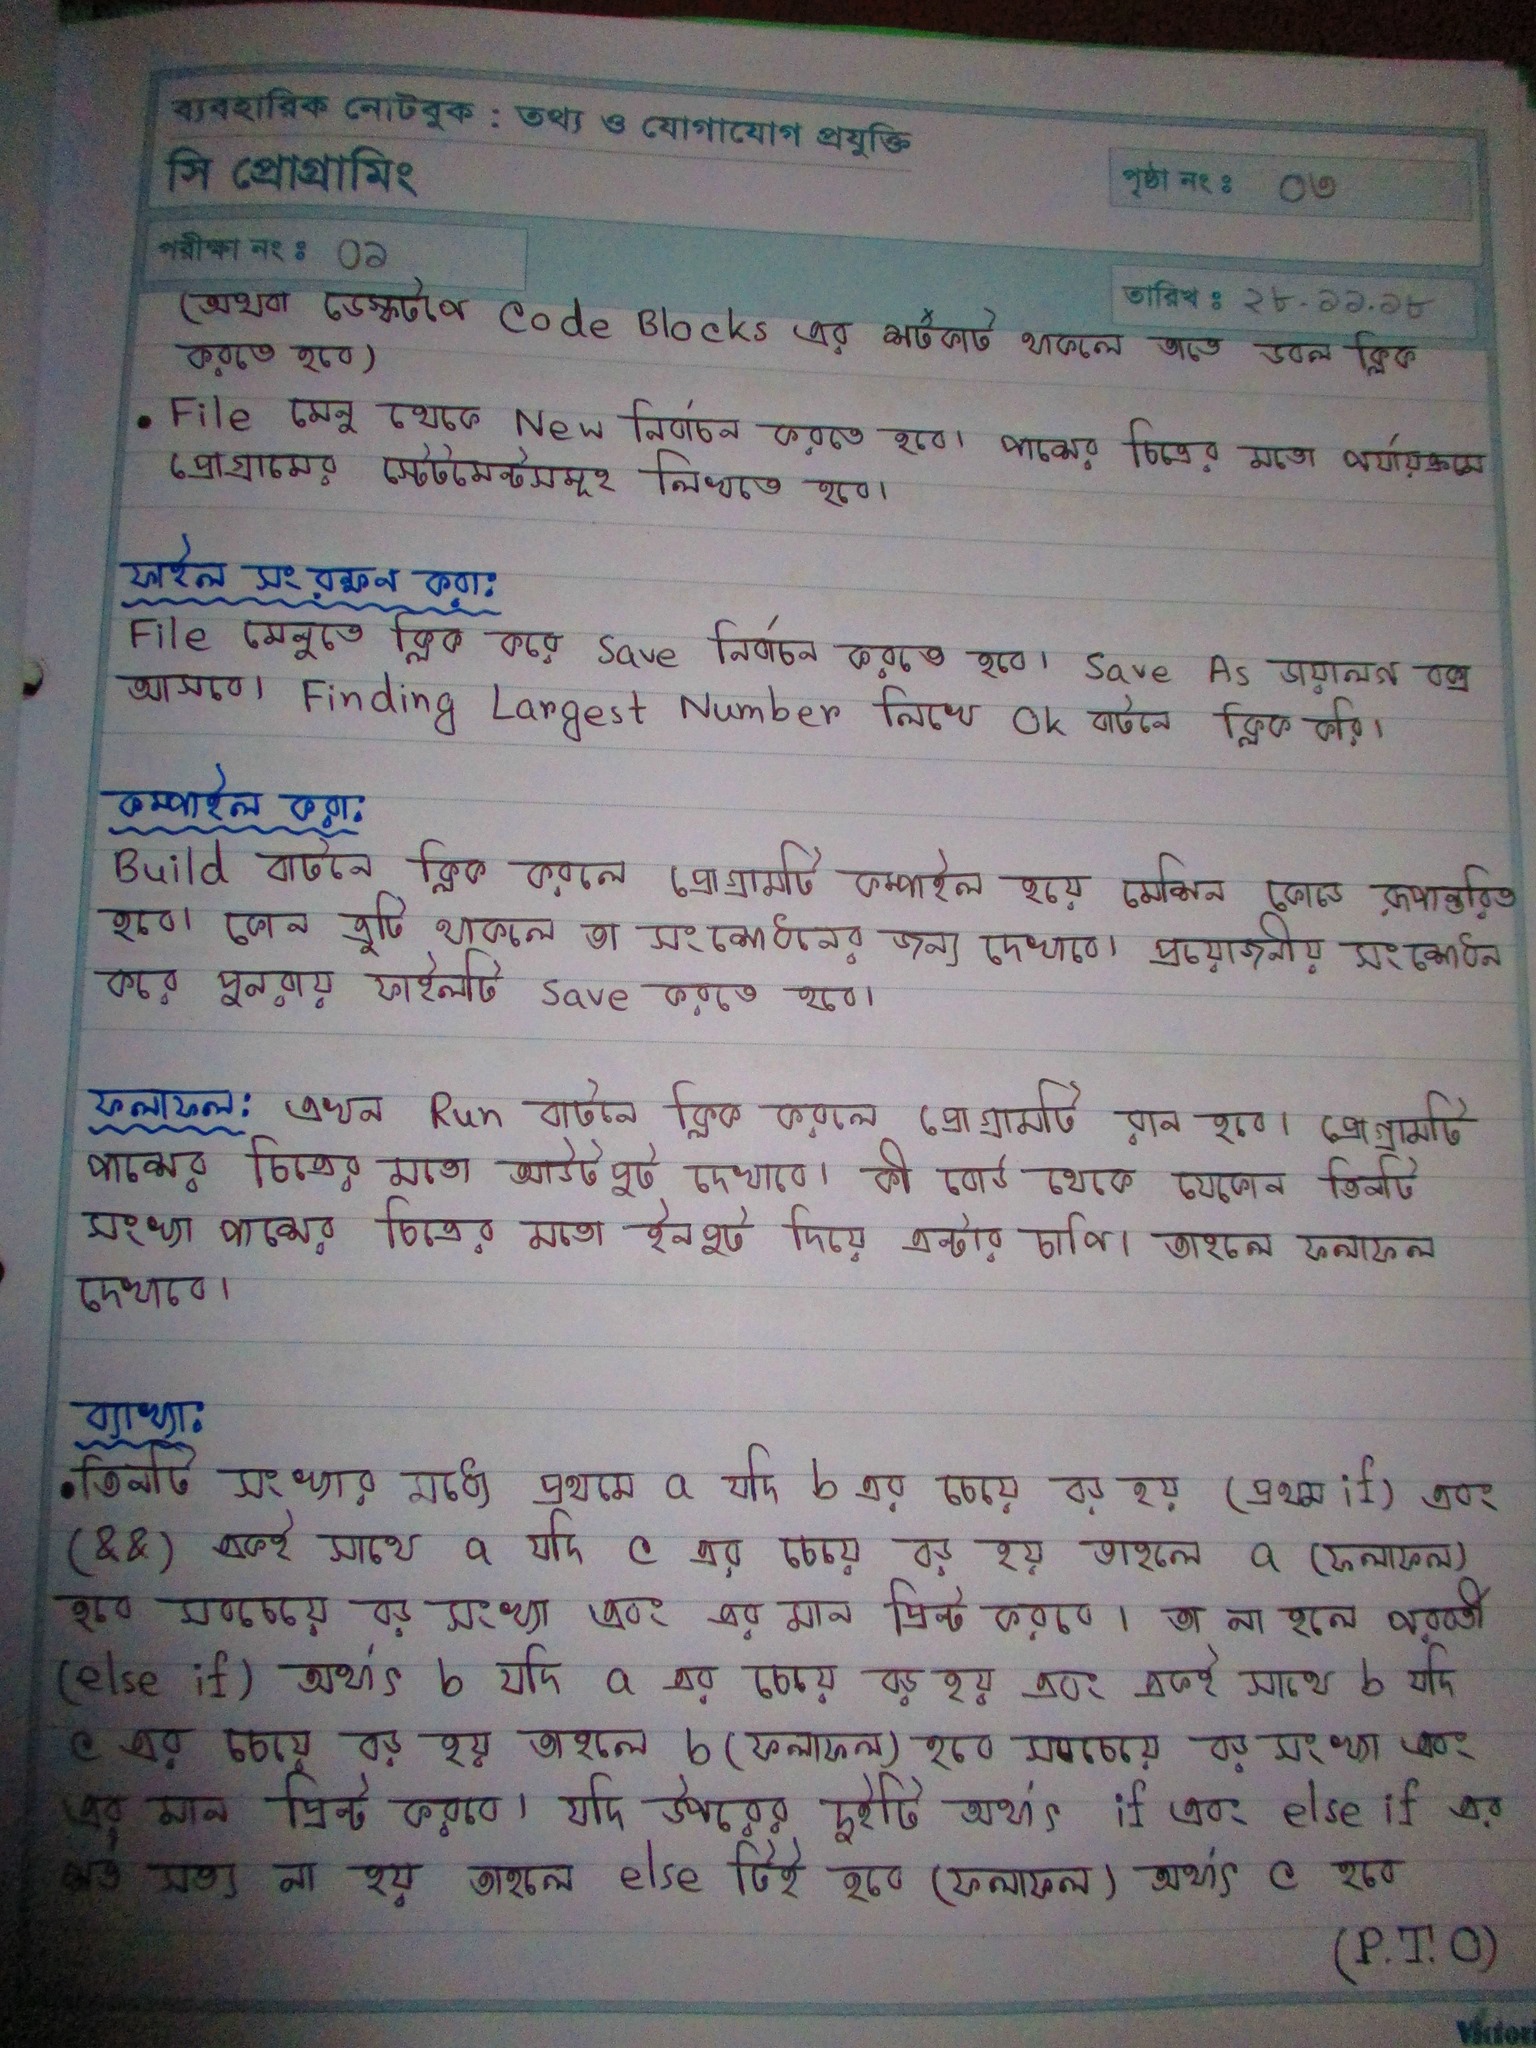 ব্যবহারিক নোটবুক : তথ্য ও যোগাযোগ প্রযুক্তি
সি প্রোগ্রামিং
পৃষ্ঠা নং ঃ ০৩
পরীক্ষা নং ঃ ০১
তারিখ ঃ ২৮.১১.১৮
(অথবা ডেস্কটপে Code Blocks এর শর্টকাট থাকলে তাতে ডবল ক্লিক
করতে হবে)
• File মেনু থেকে New নির্বাচন করতে হবে। পাশের চিত্রের মতো পর্যায়ক্রমে
প্রোগ্রামের স্টেটমেন্টসমূহ লিখতে হবে।
ফাইল সংরক্ষন করা:
File মেনুতে ক্লিক করে Save নির্বাচন করতে হবে। Save As ডায়ালগ বক্স
আসবে। Finding Largest Number লিখে Ok বাটনে ক্লিক করি।
কম্পাইল করা:
Build বাটনে ক্লিক করলে প্রোগ্রামটি কম্পাইল হয়ে মেশিন কোডে রূপান্তরিত
হবে। কোন ত্রুটি থাকলে তা সংশোধনের জন্য দেখাবে। প্রয়োজনীয় সংশোধন
করে পুনরায় ফাইলটি save করতে হবে।
ফলাফল: এখন Run বাটনে ক্লিক করলে প্রোগ্রামটি রান হবে। প্রোগ্রামটি
পাশের চিত্রের মতো আউটপুট দেখাবে। কী বোর্ড থেকে যেকোন তিনটি
সংখ্যা পাশের চিত্রের মতো ইনপুট দিয়ে এন্টার চাপি। তাহলে ফলাফল
দেখাবে।
ব্যাখ্যা:
•তিনটি সংখ্যার মধ্যে প্রথমে a যদি b এর চেয়ে বড় হয় (প্রথম if) এবং
(&&) একই সাথে a যদি c এর চেয়ে বড় হয় তাহলে a (ফলাফল)
হবে সবচেয়ে বড় সংখ্যা এবং এর মান প্রিন্ট করবে। তা না হলে পরবর্তী
(else if) অর্থাৎ b যদি a এর চেয়ে বড় হয় এবং একই সাথে b যদি
c এর চেয়ে বড় হয় তাহলে b (ফলাফল) হবে সবচেয়ে বড় সংখ্যা এবং
এর মান প্রিন্ট করবে। যদি উপরের দুইটি অর্থাৎ if এবং else if এর
শর্ত সত্য না হয় তাহলে else টিই হবে (ফলাফল) অর্থাৎ c হবে
(P.T.O)